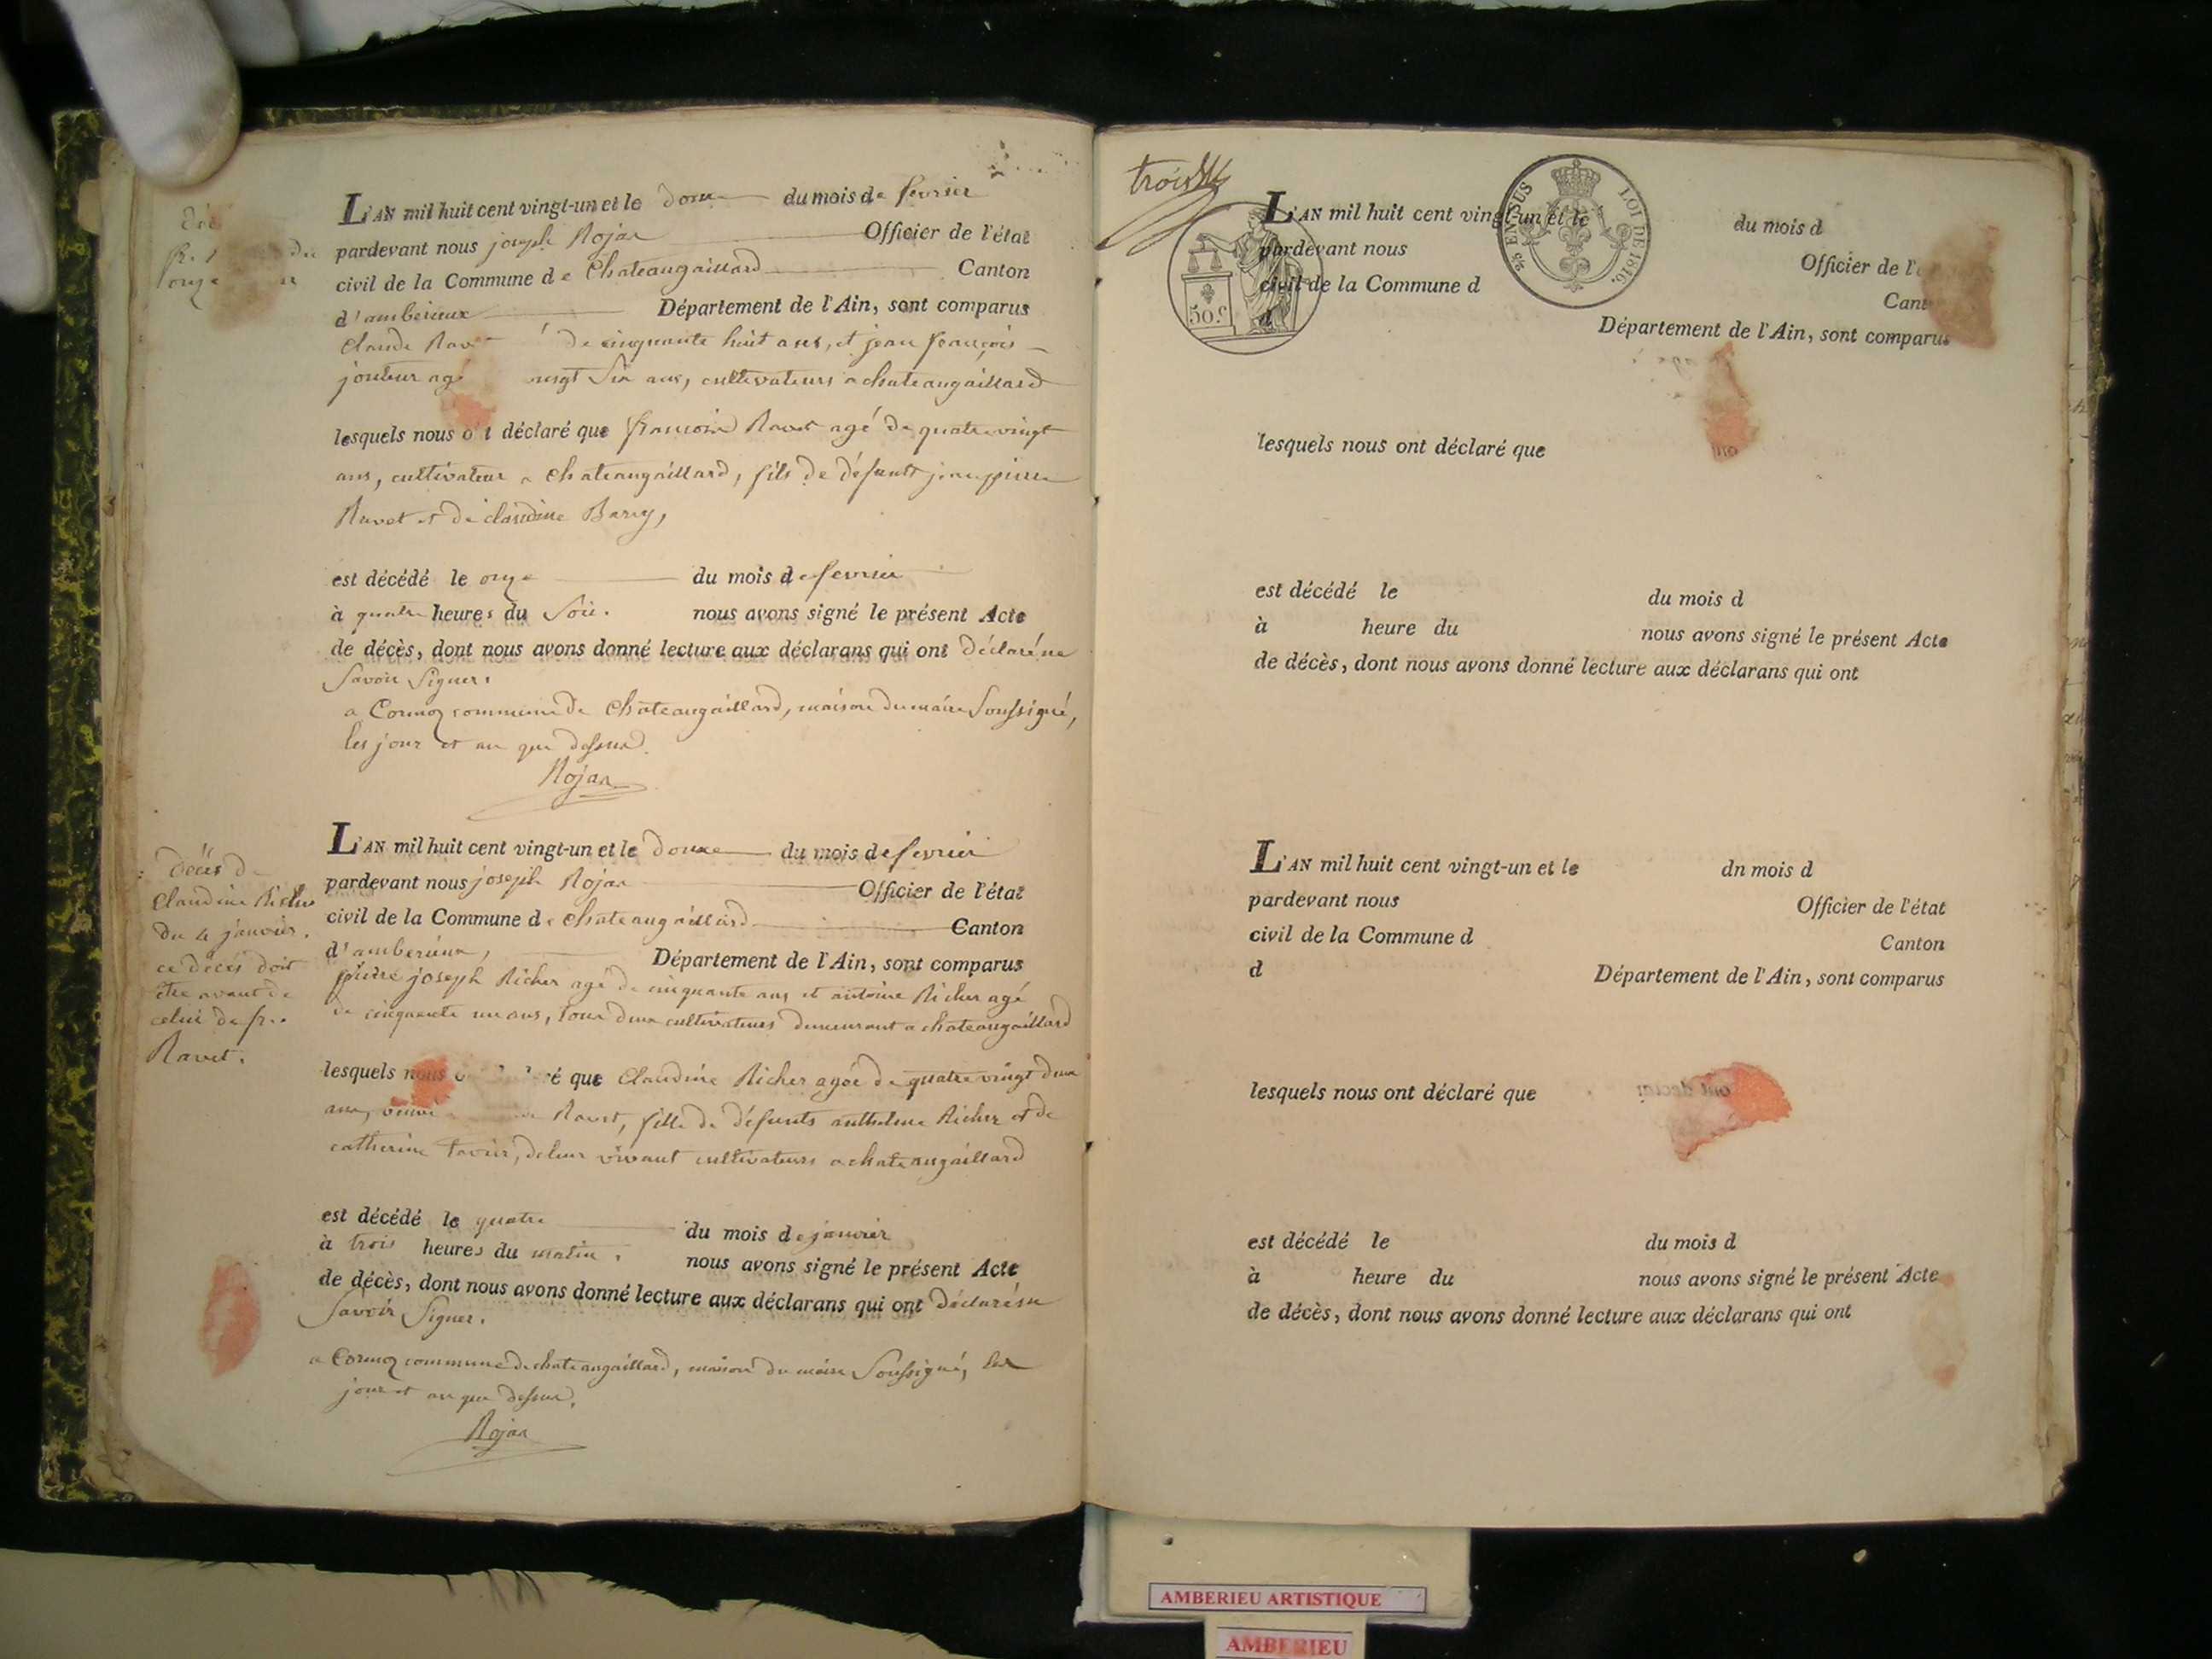 L'AN mil huit cent vingt-un et le douze du mois de fevrier
pardevant nous joseph Rojan Officier de l'état
civil de la Commune de Chateaugaillard Canton
d'amberieux Département de l'Ain, sont comparus
Claude Rav de cinquante huit ans, et jean françois
jouteur agé vingt Six ans, cultivateurs a chateaugaillard
lesquels nous déclaré que francois Ravet agé de quatre vingt
ans, cultivateur a chateaugaillard, fils de défunts jean pierre
Ravet et de claudine Barry,
est décédé le onze du mois de fevrier
à quatre heures du Soir. nous avons signé le présent Acte
de décès, dont nous avons donné lecture aux déclarans qui ont déclaré ne
Savoir Signer.
a Cormoz commune de Chateaugaillard, maison du maire Soussigné,
les jour et an que dessus.
Rojan
décès de
Claudine Richer
du 4 janvier.
ce décés doit
être avant de
celui de fr.
Ravet.
L'AN mil huit cent vingt-un et le douze du mois de fevrier
pardevant nous joseph Rojan Officier de l'état
civil de la Commune de chateaugaillard Canton
d'amberieux, Département de l'Ain, sont comparus
pierre joseph Richer agé de cinquante ans et antoine Richer agé
de cinquante un ans, tous deux cultivateurs demeurant a chateaugaillard
lesquels nous é que Claudine Richer agée de quatre vingt deux
ans, veuve Ravet, fille de défunts anthelme Richer et de
catherine Tavier, de leur vivant cultivateurs a chateaugaillard
est décédé le quatre du mois de janvier
à trois heures du matin. nous avons signé le présent Acte
de décès, dont nous avons donné lecture aux déclarans qui ont déclaré ne
Savoir Signer.
a Cormoz commune de chateaugaillard, maison du maire Soussigné, les
jour et an que dessus.
Rojan
trois
2/5 EN SUS LOI DE 1816.
50 c.
L'AN mil huit cent vingt-un et le du mois d
pardevant nous Officier de l'
civil de la Commune d Cant
d Département de l'Ain, sont comparus
lesquels nous ont déclaré que
est décédé le du mois d
à heure du nous avons signé le présent Acte
de décès, dont nous avons donné lecture aux déclarans qui ont
L'AN mil huit cent vingt-un et le dn mois d
pardevant nous Officier de l'état
civil de la Commune d Canton
d Département de l'Ain, sont comparus
lesquels nous ont déclaré que
est décédé le du mois d
à heure du nous avons signé le présent Acte
de décès, dont nous avons donné lecture aux déclarans qui ont
AMBERIEU ARTISTIQUE
AMBERIEU